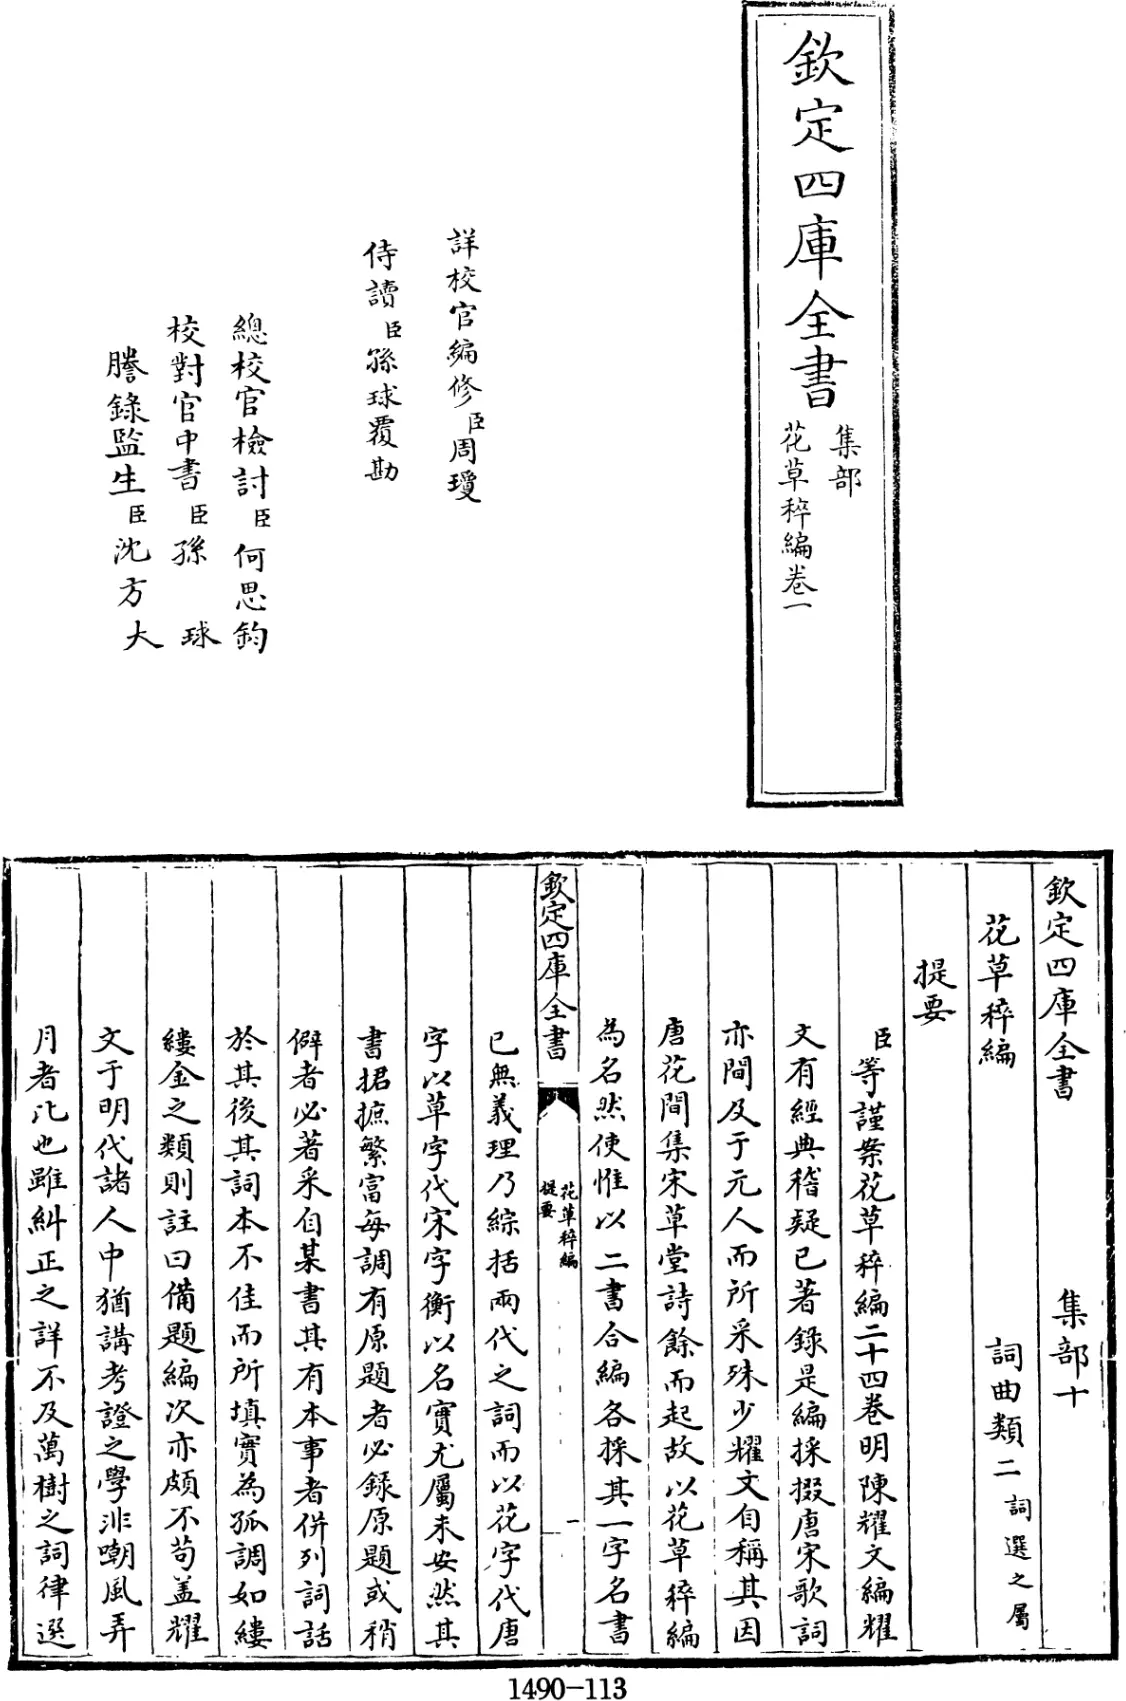 欽定四庫全書
集部
花草稡編卷一
詳校官編修臣周瓊
侍讀臣孫球覆勘
總校官檢討臣何思鈞
校對官中書臣孫球
謄錄監生臣沈方大
欽定四庫全書 集部十
花草稡編 詞曲類二詞選之屬
提要
臣等謹案花草稡編二十四卷明陳耀文編耀
文有經典稽疑已著錄是編採掇唐宋歌詞
亦間及于元人而所采殊少耀文自稱其因
唐花間集宋草堂詩餘而起故以花草稡編
為名然使惟以二書合編各採其一字名書
欽定四庫全書
花草稡編
提要
一
已無義理乃綜括兩代之詞而以花字代唐
字以草字代宋字衡以名實尤屬未安然其
書捃摭繁富每調有原題者必錄原題或稍
僻者必著采自某書其有本事者併列詞話
於其後其詞本不佳而所填實為孤調如縷
縷金之類則註曰備題編次亦頗不苟蓋耀
文于明代諸人中猶講考證之學非嘲風弄
月者比也雖糾正之詳不及萬樹之詞律選
1490-113